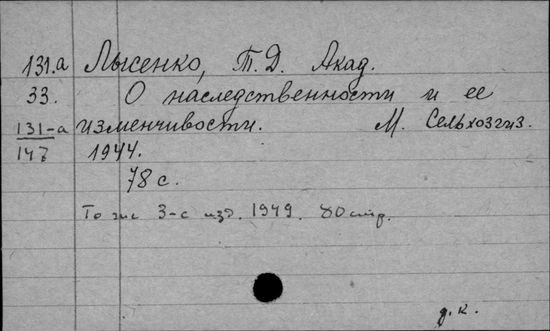 131.а Лысенко, Т. Д. Акад.
33. О наследственности и ее
131-а изменчивости. М. Сельхозгиз.
147 1944.
78 с.
То же 3-е изд. 1949. 80 стр.
д. к.